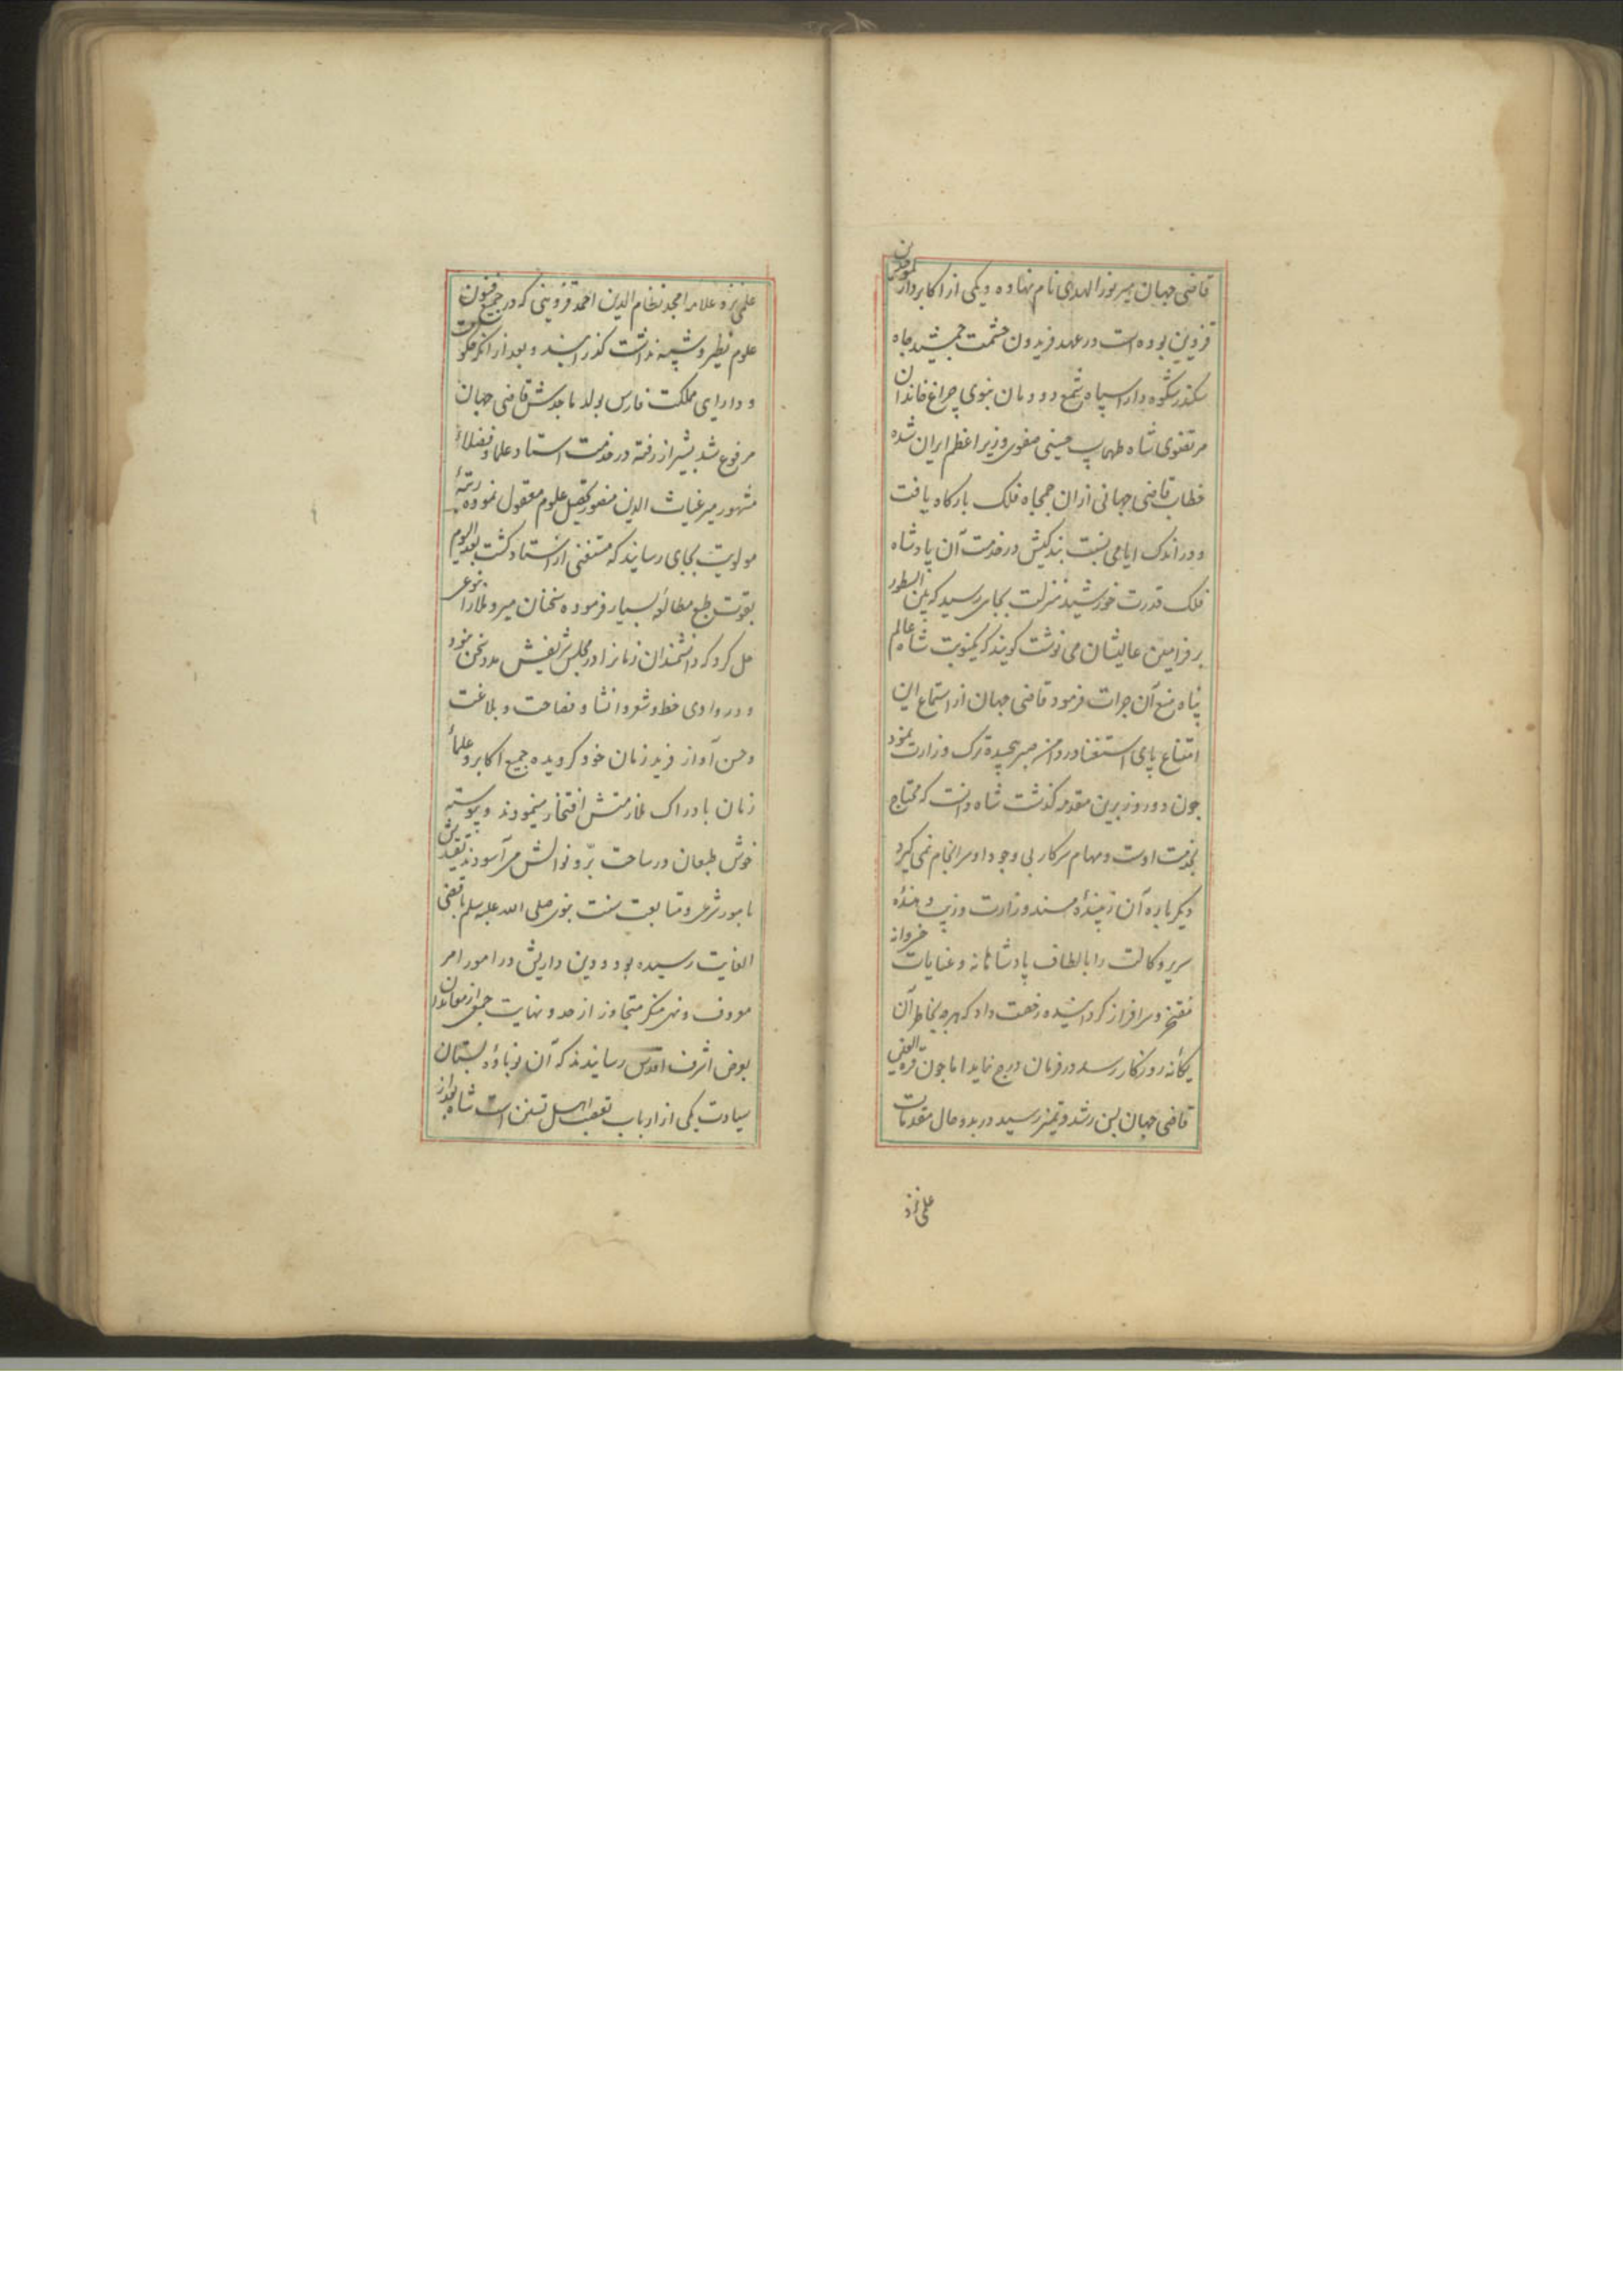 قاضی جهان میر نور الهدی نام نهاده و یکی از اکابر دار الموحدین
قزوین بوده است در عهد فریدون حشمت جمشید جاه
سکندر شکوه دارا سپاه شمع دودمان نبوی چراغ خاندان
مرتضوی شاه طهماسب حسینی صفوی وزیر اعظم ایران شده
خطاب قاضی جهانی ازان جمجاه فلک بارکاه یافت
و در اندک ایامی نسبت بندکیش در خدمت آن پادشاه
فلک قدرت خورشید منزلت بجای رسید که بین السطور
بر فرامین عالیشان می نوشت کویند که یکنوبت شاه عالم
پناه منع آن جرات فرمود قاضی جهان از استماع این
امتناع پای استغنا در دامن صبر پیچیده ترک وزارت نمود
جون دو روز برین مقدمه کذشت شاه دانست که محتاج
بخدمت اوست و مهام سرکار بی وجود او سرانجام نمی کیرد
دیکر باره آن زیبندهٔ مسند وزارت و زینت دهندهٔ
سریر وکالت را بالطاف پادشاهانه و عنایات خسروانه
مفتخر و سرافراز کردانیده رخصت داد که هرچه بخاطر آن
یکانه روزکار رسد در فرمان درج نماید اما جون قرة العین
قاضی جهان بسن رشد و تمیز رسید در بدو حال مقدمات
علمی نزد
علمی نزد علامه امجد نظام الدین احمد قزوینی که در جمیع فنون
علوم نظیر و شبیه نداشت کذرانید و بعد از انکه حکومت
و دارای مملکت فارس بولد ماجدش قاضی جهان
مرفوع شد بشیراز رفته در خدمت استاد علما و فضلاء
مشهور میر غیاث الدین منصور تحصیل علوم معقول نموده رتبهٔ
مولویت بجای رسانید که مستغنی از استاد کشت بعد الیوم
بقوت طبع مطالعهٔ بسیار فرموده سخنان میر و ملا را نوعی
حل کرد که دانشمندان زمانرا در مجلس شریفش مدد سخن نبود
و در وادی خط و شعر و انشا و فصاحت و بلاغت
و حسن آواز فرید زمان خود کردیده جمیع اکابر و علماء
زمان بادراک ملازمتش افتخار مینمودند و پیوسته
خوش طبعان در ساحت برّ و نوالش می آسودند تقیدش
بامور شرعی و متابعت سنت نبوی صلی الله علیه وسلم باقصی
الغایت رسیده بود و دین داریش در امور امر
معروف و نهی منکر متجاوز از حد و نهایت جمعی از معاندان
بعرض اشرف اقدس رسانیدند که آن نوباوهٔ بستان
سیادت یکی از ارباب تعصب اهل تسنن است شاه بعد از